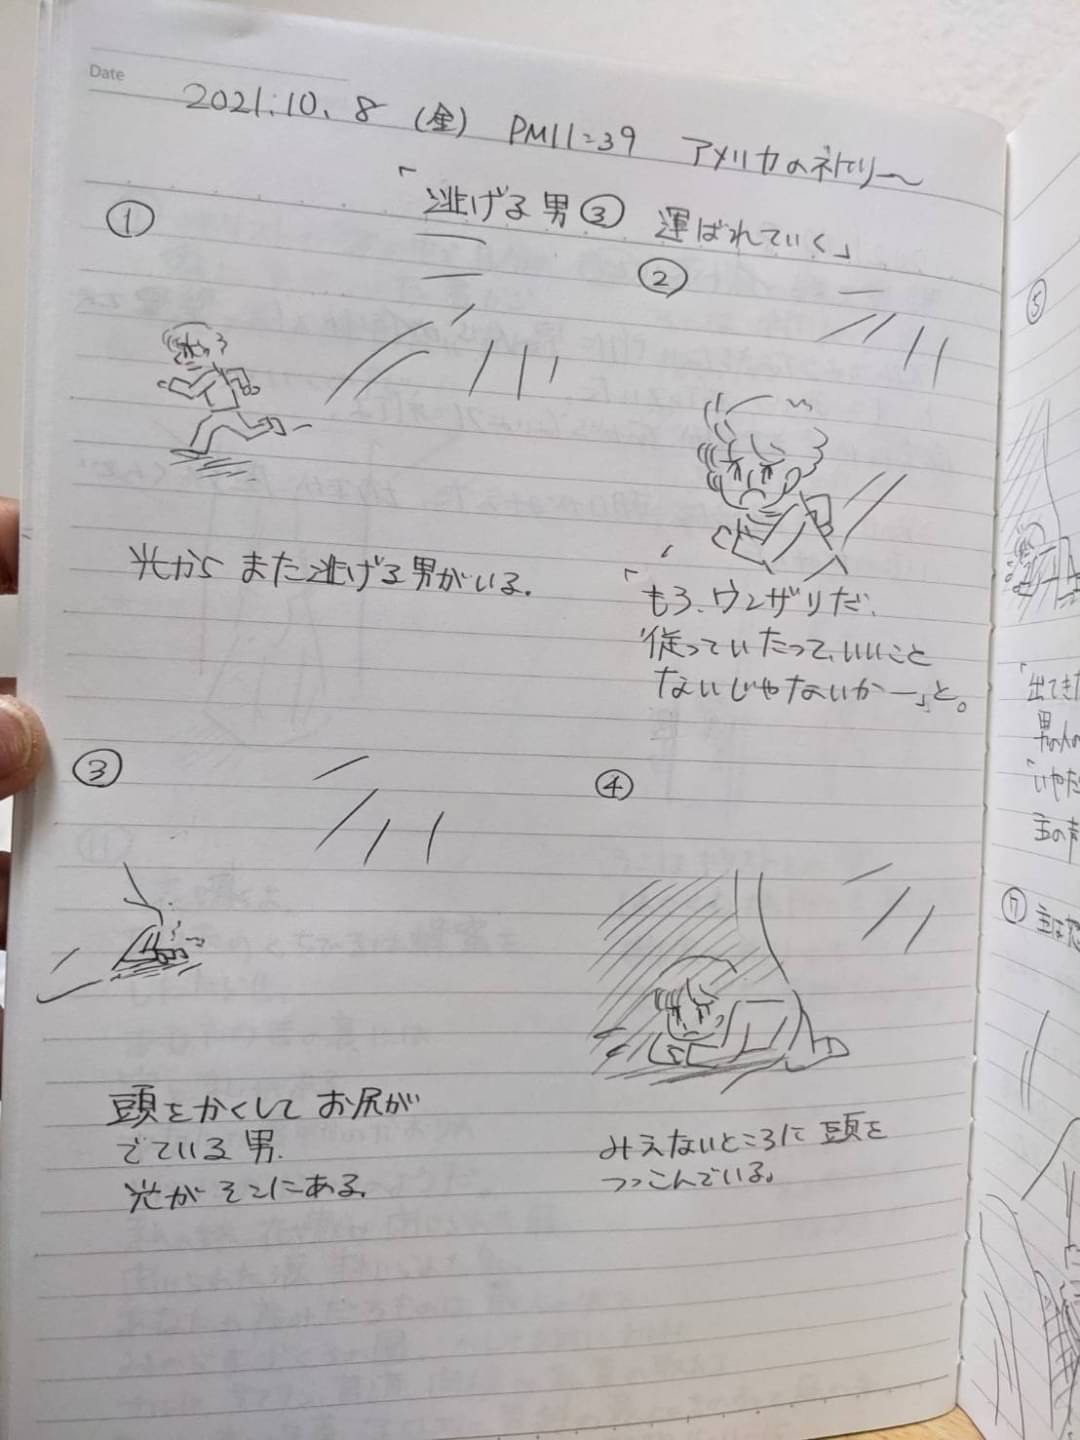 Date
2021.10.8 (金) PM11:39 アメリカの
「逃げる男③ 運ばれていく」
①
光から また逃げる男がいる。
②
「もう、ウンザリだ、
従っていたって、いいこと
ないじゃないかー」と。
③
頭をかくして お尻が
でている男.
光が そこにある。
④
みえないところに 頭を
つっこんでいる。
⑤
「出てきた
男の人の
「いやだ
主の声
⑦ 主は